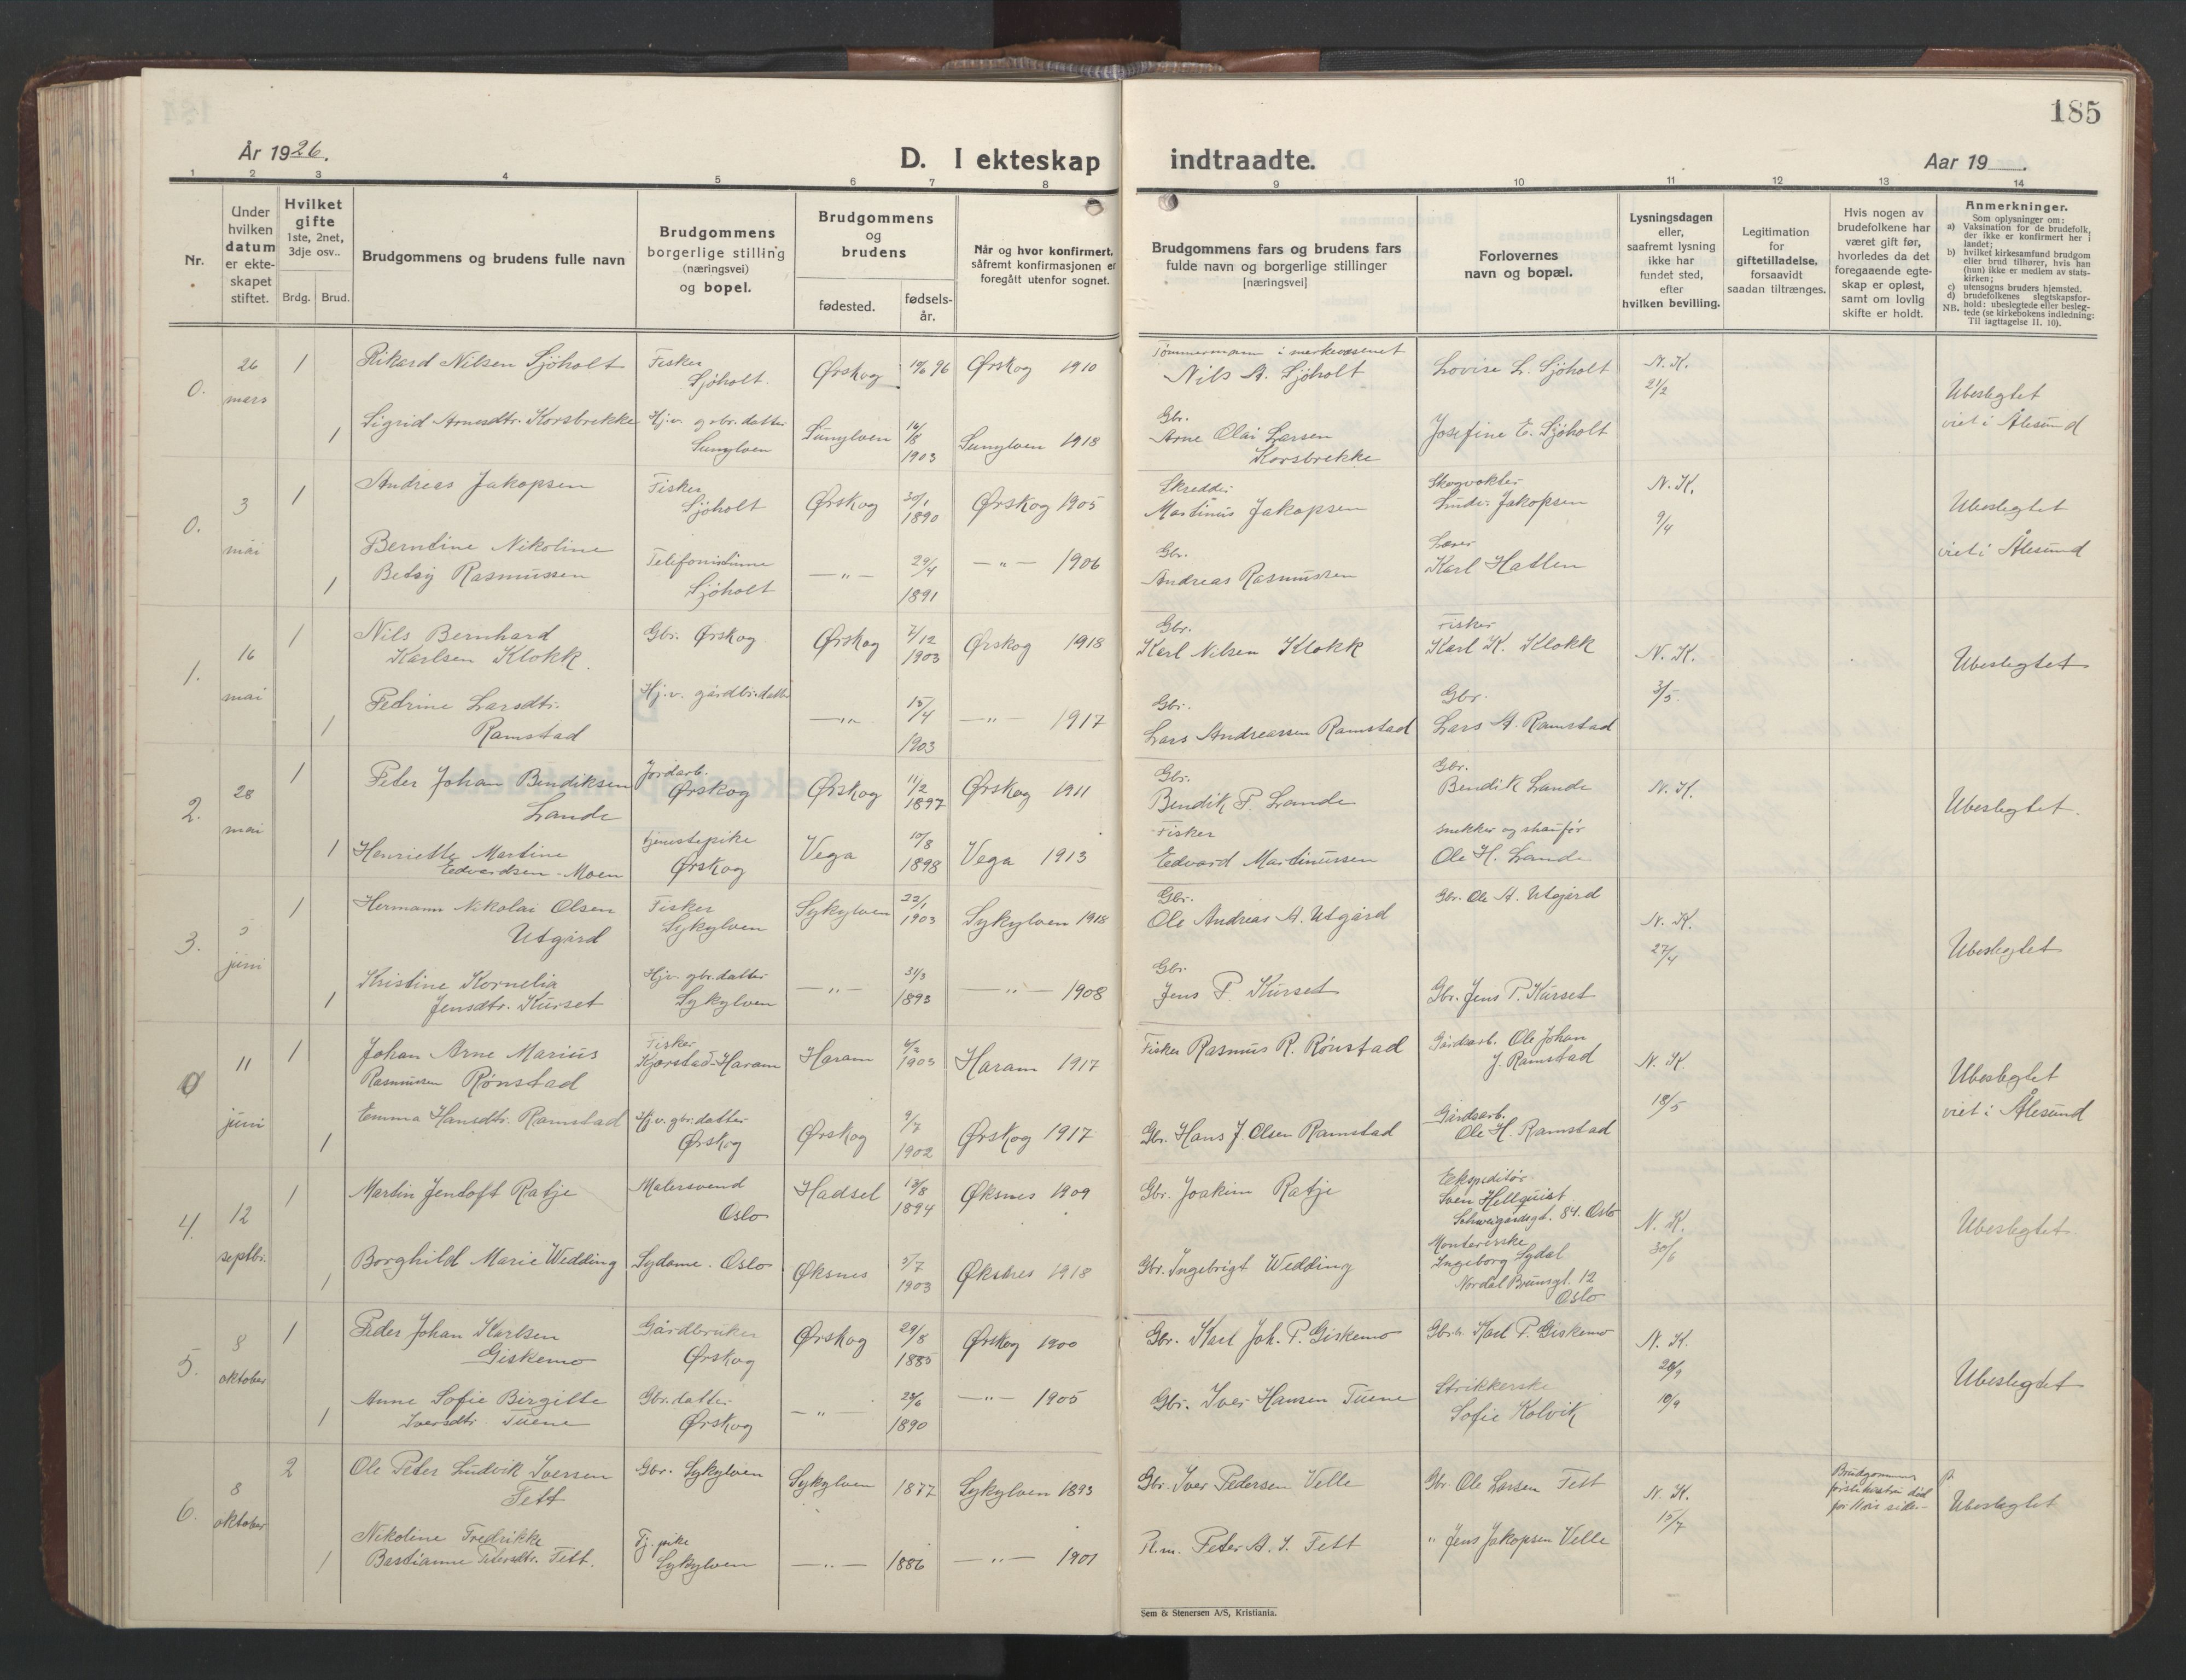 185
År 1926.
D. I ekteskap indtraadte.
Aar 19
1 2 3 4 5 6 7 8 9 10 11 12 13 14
Nr.
Under hvilken datum er ekteskapet stiftet.
Hvilket gifte 1ste, 2net, 3dje osv..
Brdg. Brud.
Brudgommens og brudens fulle navn
Brudgommens borgerlige stilling (næringsvei) og bopel.
Brudgommens og brudens
fødested.
fødsels-år.
Når og hvor konfirmert, såfremt konfirmasjonen er foregått utenfor sognet.
Brudgommens fars og brudens fars fulde navn og borgerlige stillinger [næringsvei]
Forlovernes navn og bopæl.
Lysningsdagen eller, saafremt lysning ikke har fundet sted, efter hvilken bevilling.
Legitimation for giftetilladelse, forsaavidt saadan tiltrænges.
Hvis nogen av brudefolkene har været gift før, hvorledes da det foregaaende egteskap er opløst, samt om lovlig skifte er holdt.
Anmerkninger.
Som oplysninger om:
a) Vaksination for de brudefolk, der ikke er konfirmert her i landet;
b) hvilket kirkesamfund brudgom eller brud tilhører, hvis han (hun) ikke er medlem av statskirken;
c) utensogns bruders hjemsted.
d) brudefolkenes slegtskapsforhold: ubeslegtede eller beslegtede (se kirkebokens indledning:
NB. Til iagttagelse II. 10).
0. 26 mars 1 Rikard Nilsen Sjöholt Fisker Sjöholt. Ørskog 96 Ørskog 1910 Tømmermann i merkevesenet Nils A. Sjöholt Lovise L. Sjöholt N. K. 21/2 Ubeslegtet
1 Sigrid Arnesdtr. Korsbrekke Hj.v. gbr.datter Sunylven Sunylven 16/8 1903 Sunylven 1918 Gbr. Arne Olai Larsen Korsbrekke Josefine E. Sjöholt viet i Ålesund
0. 3 mai 1 Andreas Jakopsen Fisker Sjöholt Ørskog 30/1 1890 Ørskog 1905 Skredder Martinus Jakopsen Skogvokter Jakopsen N. K. 9/4 Ubeslegtet
1 Berntine Nikoline Betsy Rasmussen Telefonistinne Sjöholt —"— 29/4 1891 —"— 1906 Gbr. Andreas Rasmussen Lærer Karl Hatlen viet i Ålesund
1. 16 mai 1 Nils Bernhard Karlsen Klokk. Gbr. Ørskog Ørskog 7/12 1903 Ørskog 1918 Gbr. Karl Nilsen Klokk Fisker Karl K. Klokk N. K. 3/5. Ubeslegtet
1 Petrine Larsdtr. Ramstad Hj.v. gårdbr.datter —"— 15/4 1903 —"— 1917 Gbr. Lars Andreassen Ramstad Gbr. Lars A. Ramstad
2. 28 mai 1 Peter Johan Bendiksen Lande Jordarb. Ørskog Ørskog 11/2 1897 Ørskog 1911 Gbr. Bendik P. Lande Gbr. Bendik Lande N. K. Ubeslegtet.
1 Henriette Martine Edvardsen-Moen tjenestepike Ørskog Vega 10/8 1898 Vega 1913 Fisker Edvard Martinussen snekker og shaufør Ole H. Lande
3. 3 juni 1 Hermann Nikolai Olsen Utgård Fisker Sykylven Sykylven 22/1 1903 Sykylven 1918 Gbr. Ole Andreas A. Utgård Gbr. Ole A. Utgjerd N. K. 27/4 Ubeslegtet
1 Kristine Kornelia Jensdtr. Kurset Hjv. gbr.datter Sykylven —"— 31/3 1893 —"— 1908 Gbr. Jens P. Kurset Gbr. Jens P. Kurset
0 11 juni 1 Johan Arne Marius Rasmussen Rønstad Fisker Kjerstad-Haram Haram 6/2 1903 Haram 1917 Fisker Rasmus R. Rønstad Gårdsarb. Ole Johan J. Ramstad N. K. 18/5 Ubeslegtet
1 Emma Hansdtr. Ramstad Hj.v. gbr.datter Ørskog Ørskog 9/7 1902 Ørskog 1917 Gbr. Hans J. Olsen Ramstad Gårdsarb. Ole H. Ramstad viet i Ålesund
4. 12 septbr. 1 Martin Jentoft Ratje Malersvend Oslo Hadsel 13/8 1894 Øksnes 1909 Gbr. Joakim Ratje Ekspeditør Sven Hellquist Schweigaardsgt. 84. Oslo N. K. 30/6 Ubeslegtet
1 Borghild Marie Wedding Sydame. Oslo Øksnes 5/7 1903 Øksnes 1918 Gbr. Ingebrigt Wedding Montererske Ingeborg Sydal Nordal Brunsgt. 12 Oslo
5. 8 oktober 1 Peder Johan Karlsen Giskemo Gårdbruker Ørskog Ørskog 29/8 1885 Ørskog 1900 Gbr. Karl Joh. P. Giskemo Gbr. Karl P. Giskemo N. K. 10/9 Ubeslegtet
1 Anne Sofie Birgitte Iversdtr. Tuene Gbr.datter Ørskog —"— 1890 —"— 1905 Gbr. Iver Hansen Tuene Strikkerske Sofie Kolvik
6. 8 oktober 2 Ole Peter Ludvik Iversen Tett Gbr. Sykylven Sykylven 1877 Sykylven 1893 Gbr. Iver Pedersen Velle Gbr. Ole Larsen Tett N. K. 15/7 Brudgommens død for siden Ubeslegtet
1 Nikoline Fredrikke Bastianne Petersdtr. Tett. Tj.pike Sykylven —"— 1886 —"— 1901 Pl.m. Peter A. S. Tett " Jens Jakopsen Velle
Sem & Stenersen A/S, Kristiania.